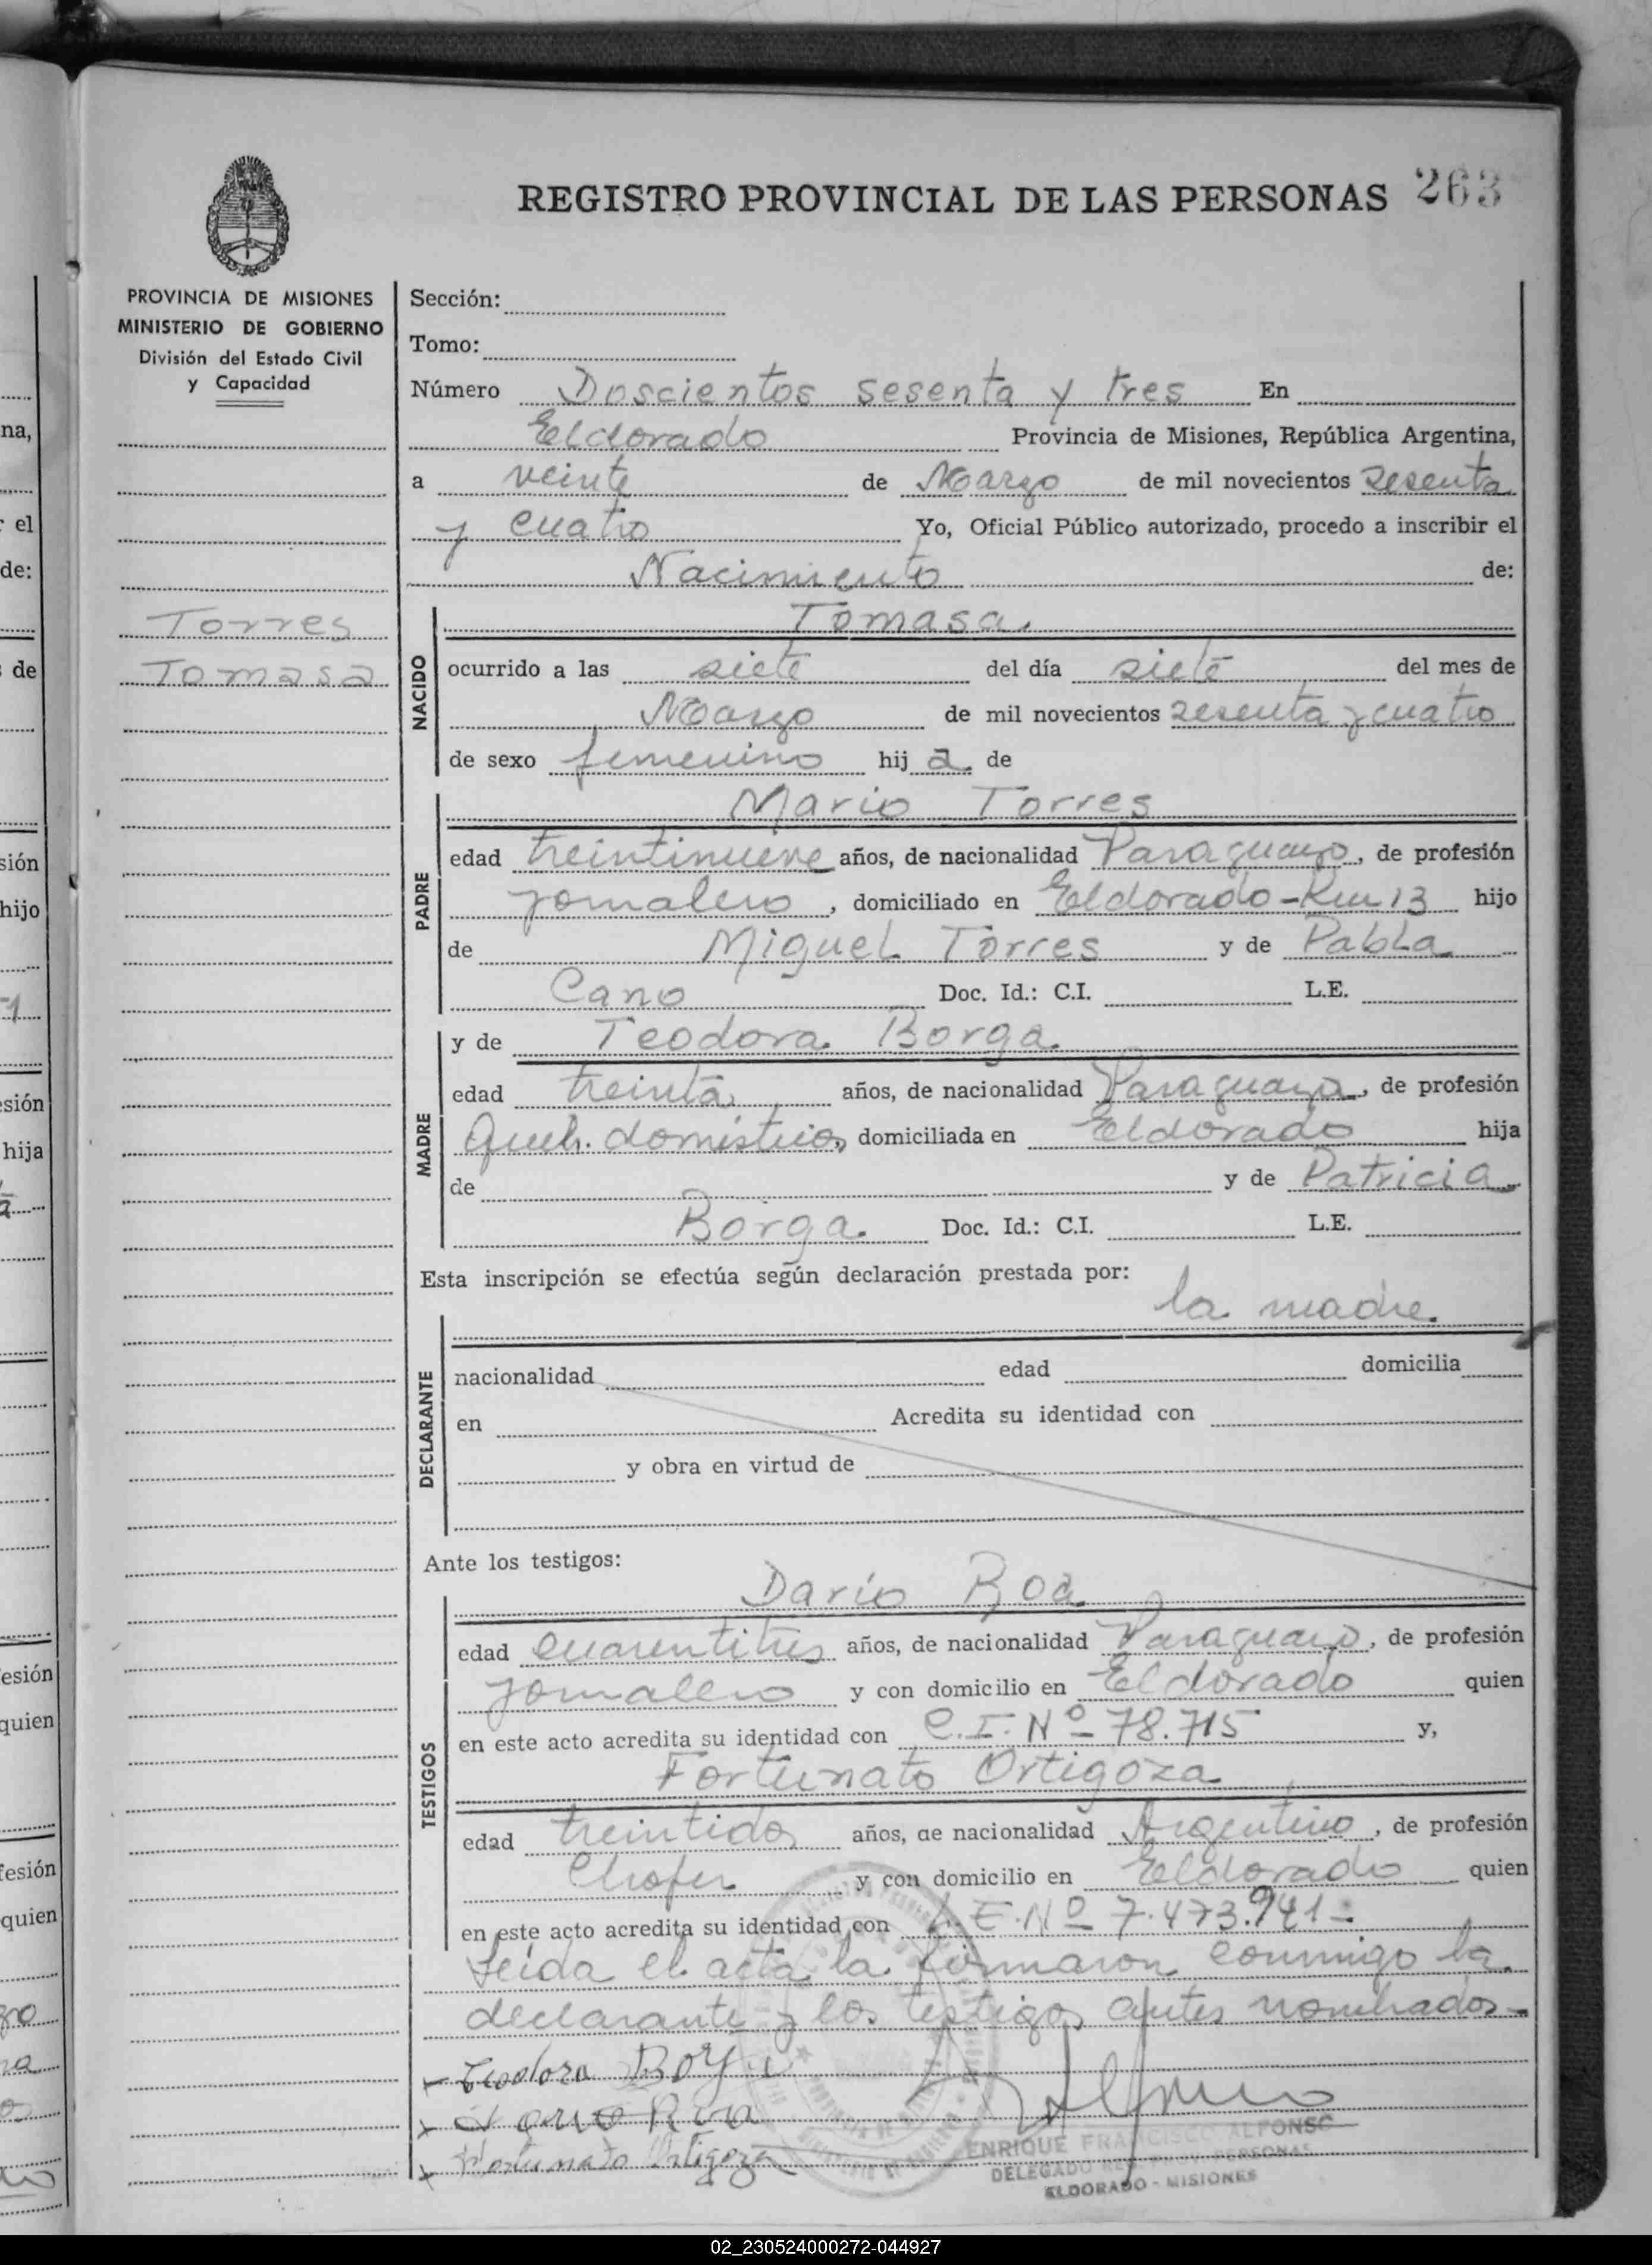 REGISTRO PROVINCIAL DE LAS PERSONAS 263
PROVINCIA DE MISIONES
MINISTERIO DE GOBIERNO
División del Estado Civil
y Capacidad
Torres
Tomasa
Sección:
Tomo:
Número Doscientos sesenta y tres En
Eldorado Provincia de Misiones, República Argentina,
a veinte de Marzo de mil novecientos sesenta
y cuatro Yo, Oficial Público autorizado, procedo a inscribir el
Nacimiento de:
NACIDO
Tomasa
ocurrido a las siete del día siete del mes de
Marzo de mil novecientos sesenta y cuatro
de sexo femenino hij a de
PADRE
Mario Torres
edad treintinueve años, de nacionalidad Paraguayo, de profesión
jornalero, domiciliado en Eldorado - Km 13 hijo
de Miguel Torres y de Pabla
Cano Doc. Id.: C.I. L.E.
MADRE
y de Teodora Borga
edad treinta años, de nacionalidad Paraguaya, de profesión
Queh. domésticos, domiciliada en Eldorado hija
de y de Patricia
Borga Doc. Id.: C.I. L.E.
Esta inscripción se efectúa según declaración prestada por:
la madre
DECLARANTE
nacionalidad edad domicilia
en Acredita su identidad con
y obra en virtud de
Ante los testigos:
TESTIGOS
Darío Roa
edad cuarentitres años, de nacionalidad Paraguayo, de profesión
jornalero y con domicilio en Eldorado quien
en este acto acredita su identidad con C.I. Nº 78.715 y,
Fortunato Ortigoza
edad treintidos años, de nacionalidad Argentino, de profesión
Chofer y con domicilio en Eldorado quien
en este acto acredita su identidad con L.E. Nº 7.473.941 -
Leída el acta la firmaron conmigo la
declarante y los testigos antes nombrados -
Teodora
Fortunato Ortigoza
ENRIQUE FRANCISCO ALFONSO
DELEGADO REG. PROV. PERSONAS
ELDORADO - MISIONES
na,
el
de:
de
sión
hijo
esión
hija
esión
quien
fesión
quien
02_230524000272-044927